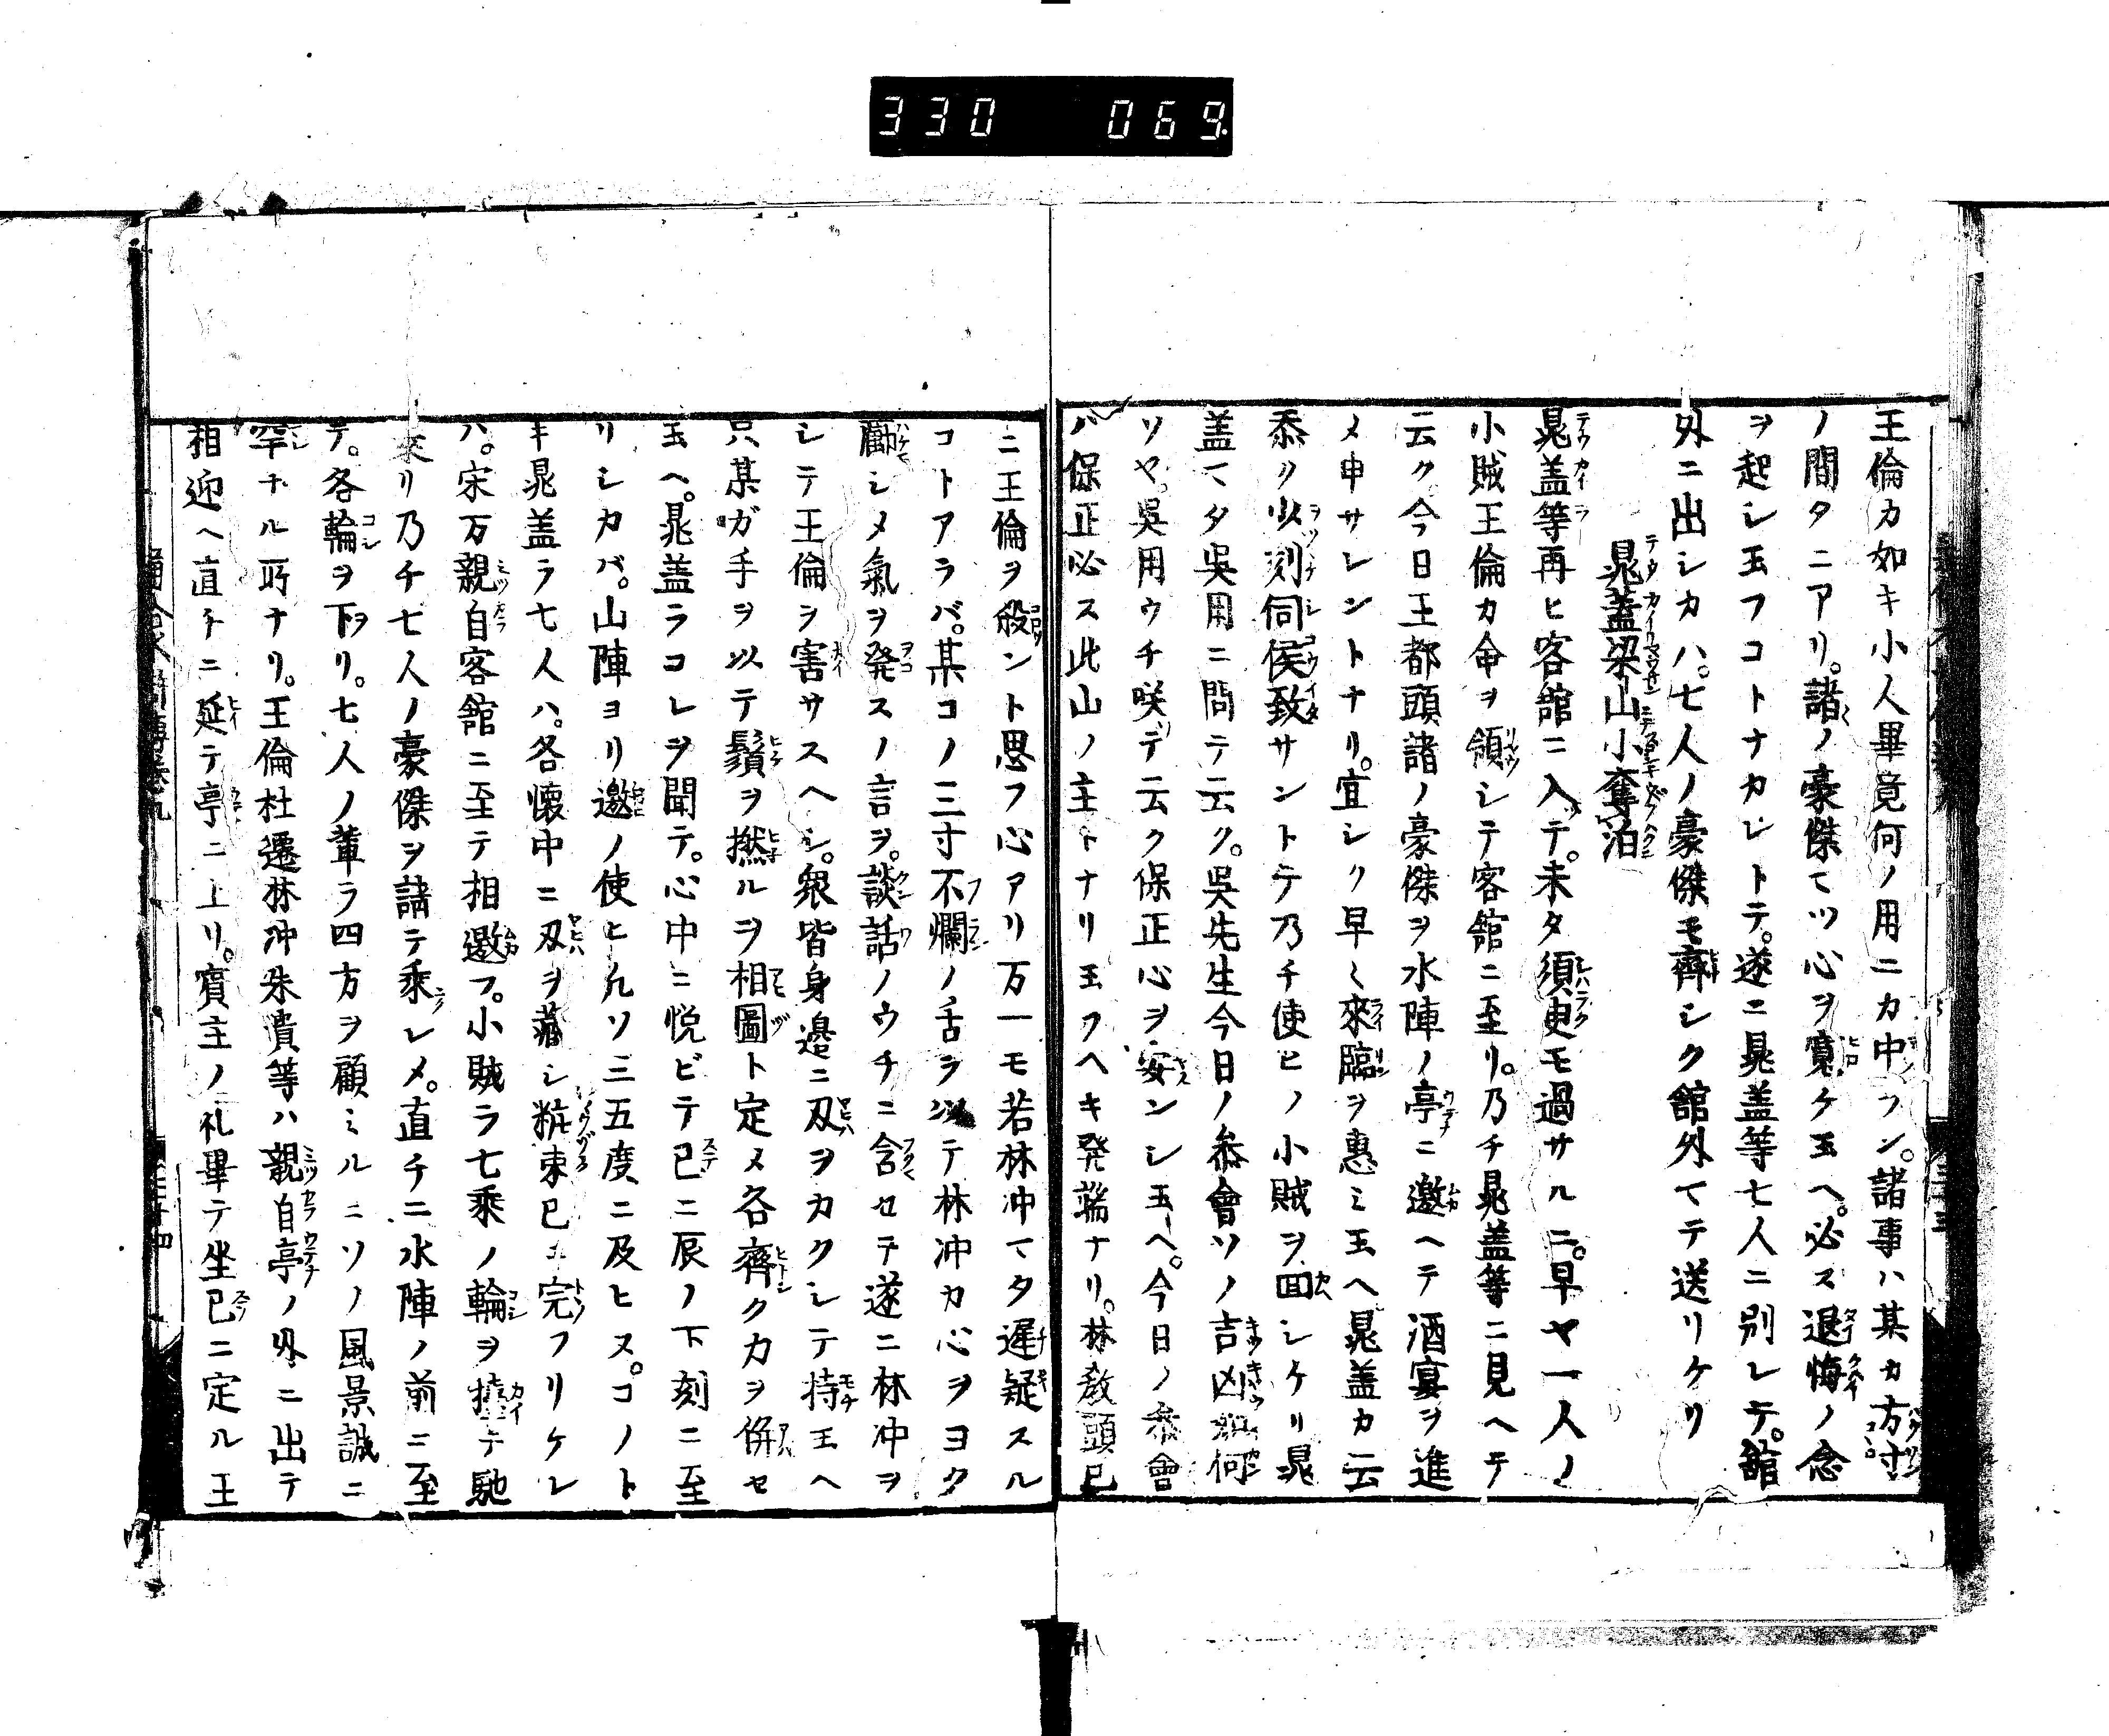 330 069
王倫カ如キ小人畢竟何ノ用ニカ中ラン。諸事ハ某カ方寸
ノ間タニアリ。諸ノ豪傑マツ心ヲ寛ケ玉ヘ。必ス退悔ノ念
ヲ起シ玉フコトナカレトテ。遂ニ晁盖等七人ニ別レテ。舘
外ニ出シカハ。七人ノ豪傑モ齊シク舘外マテ送リケリ
晁蓋梁山小奪泊
晁盖等再ヒ客舘ニ入テ。未タ須臾モ過サルニ。早ヤ一人ノ
小賊王倫カ命ヲ領シテ客舘ニ至リ。乃チ晁盖等ニ見ヘテ
云ク今日王都頭諸ノ豪傑ヲ水陣ノ亭ニ邀ヘテ酒宴ヲ進
メ申サレントナリ。宜シク早〻來臨ヲ惠ミ玉ヘ晁盖カ云
忝ク少刻伺候致サントテ乃チ使ヒノ小賊ヲ囬シケリ晁
盖マタ吳用ニ問テ云ク。吳先生今日ノ叅會ソノ吉凶如何
ソヤ。吳用ウチ咲テ云ク保正心ヲ安ンシ玉ヘ。今日ノ叅會
バ保正必ス此山ノ主トナリ玉フヘキ発端ナリ。林教頭已
ニ王倫ヲ殺ント思フ心アリ万一モ若林冲マタ遲疑スル
コトアラバ。某コノ三寸不爛ノ舌ヲ以テ林冲カ心ヲヨク
勵シメ氣ヲ発スノ言ヲ。談話ノウチニ含セテ遂ニ林冲ヲ
シテ王倫ヲ害サスヘシ。衆皆身邉ニ刄ヲカクシテ持玉ヘ
只某ガ手ヲ以テ鬚ヲ撚ルヲ相圖ト定メ各齊クカヲ併セ
玉ヘ。晁盖ラコレヲ聞テ。心中ニ悦ビテ已ニ辰ノ下刻ニ至
リシカバ。山陣ヨリ邀ノ使ヒ凡ソ三五度ニ及ヒヌ。コノト
キ晁盖ラ七人ハ。各懐中ニ刄ヲ藏シ粧束已ニ完フリケレ
ハ。宋万親自客舘ニ至テ相邀フ。小賊ラ七乘ノ轎ヲ擡テ馳
來リ乃チ七人ノ豪傑ヲ請テ乘レメ。直チニ水陣ノ前ニ至
テ。各轎ヲ下リ。七人ノ輩ラ四方ヲ顧ミルニソノ風景誠ニ
罕ナル所ナリ。王倫杜遷林冲朱貴等ハ親自亭ノ外ニ出テ
相迎ヘ直チニ延テ亭ニ上リ。賓主ノ礼畢テ坐已ニ定ル王